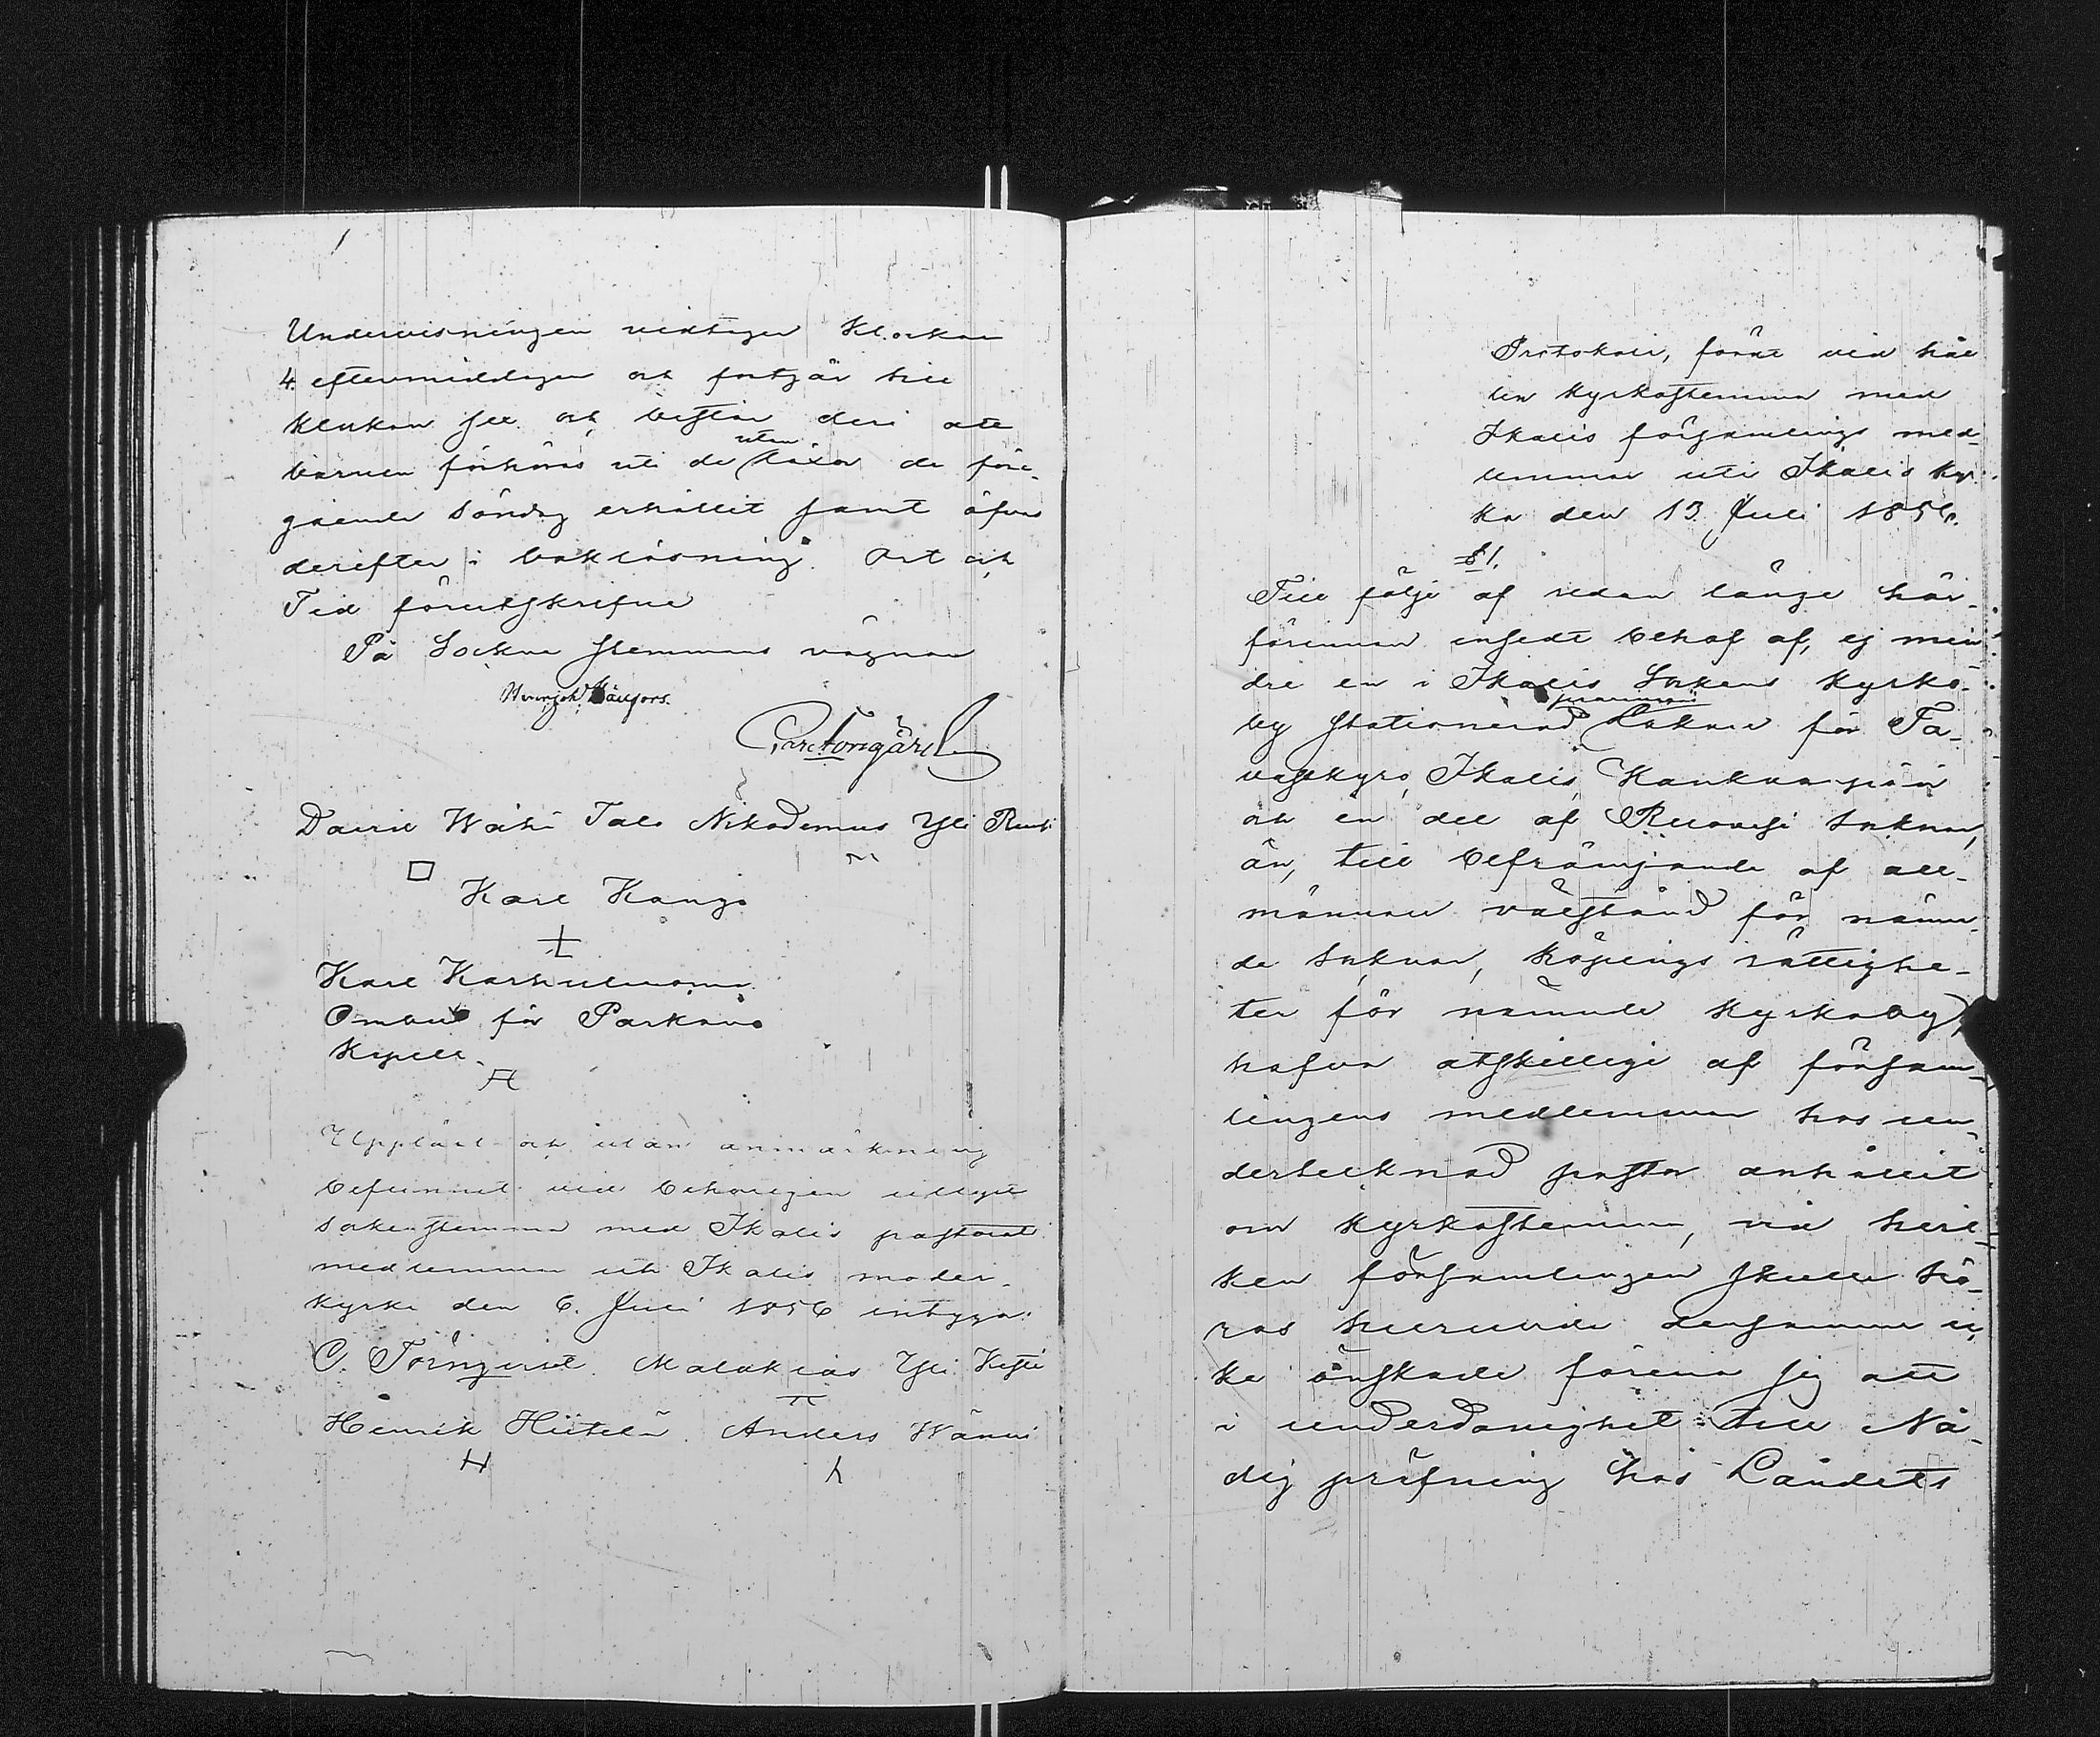 Undervisningen vidtager Klockan
4. eftermiddagen och fortgår till
klockan sex och består deri att
barnen förhöras uti de utan läxor de före-
gående Söndag erhållit samt öfvas
derefter i bokläsning. Ort och
Tid förutskrifne
På Sockne stemmans vägnar
Carl Törngård
David Wähä Talo Nikodemus Yli
Karl Kangs
Karl Karhulmans
Ombud för Parkano
Kapell.
Uppläst och utan anmärkning
befunnet vid behörigen utlyst
sockenstemma med Ikalis pastorat
medlemmar uti Ikalis moder-
kyrka den 6. Juli 1856 intyga:
C. Törngård. Malakias Yli Kesti
Henrik Hiitelä. Anders Wänni
Protokoll, fördt vid hål
len kyrkostemma med
Ikalis församlings med-
lemmar uti Ikalis kyr-
ka den 13 Juli 1856.
§ 1.
Till följe af redan länge här-
förinnan insedt behof af, ej min-
dre en i Ikalis Sockens kyrko-
by stationerad Läkare för Ta-
vastkyro, Ikalis, Kankaanpää
och en del af Ruovesi Soknar,
än, till befrämjande af all-
männare välstånd för nämn-
de soknar, köpings rättighe-
ter för nämnde Kyrkoby,
hafva åtskillige af försam-
lingens medlemmar hos un-
dertecknad pastor anhållit
om kyrkostemma, vid hvil-
ken församlingen skulle hö-
ras huruvida densamma ic-
ke önskade förena sig att
i underdånighet till Nå-
dig pröfning hos Landets